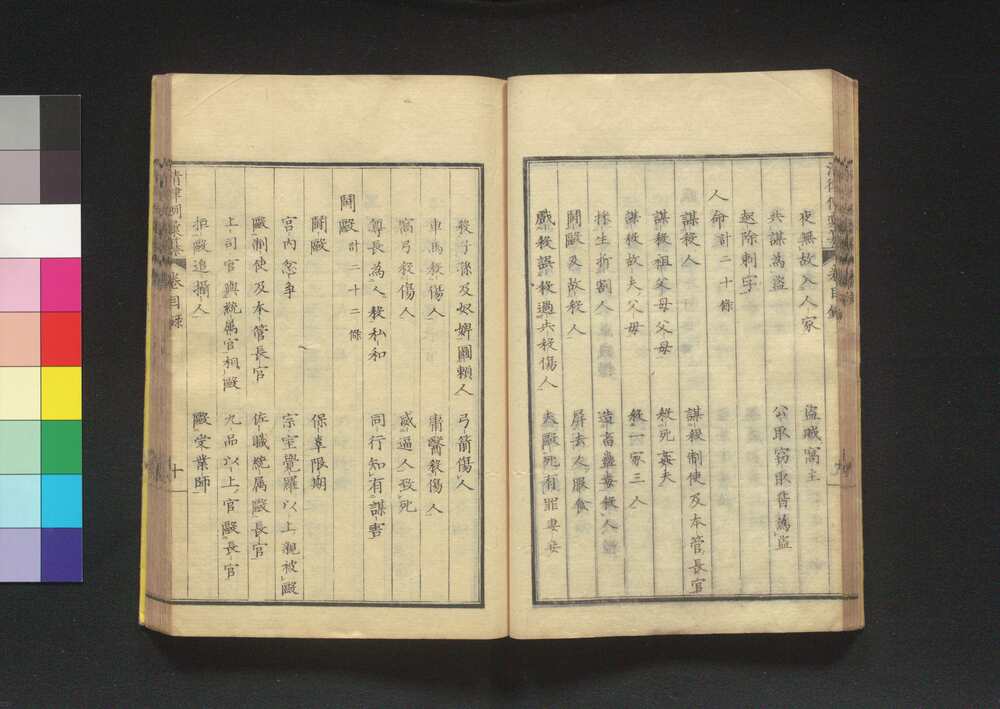 夜無故入人家　盜賊窩主
共謀為盜　公取竊取皆為盜
起除刺字
人命計二十條
謀殺人　謀殺制使及本管長官
謀殺祖父母父母　殺死姦夫
謀殺故夫父母　殺一家三人
採生折割人　造畜蠱毒殺人
鬪毆及故殺人　屏去人服食
戲殺誤殺過失殺傷人　夫毆死有罪妻妾
殺子孫及奴婢圖賴人　弓箭傷人
車馬殺傷人　庸醫殺傷人
窩弓殺傷人　威逼人致死
尊長為人殺私和　同行知有謀害
鬪毆計二十二條
鬪毆　保辜限期
宮內忿爭　宗室覺羅以上親被毆
毆制使及本管長官　佐職統属毆長官
上司官與統属官相毆　九品以上官毆長官
拒毆追攝人　毆受業師
卷目錄
十